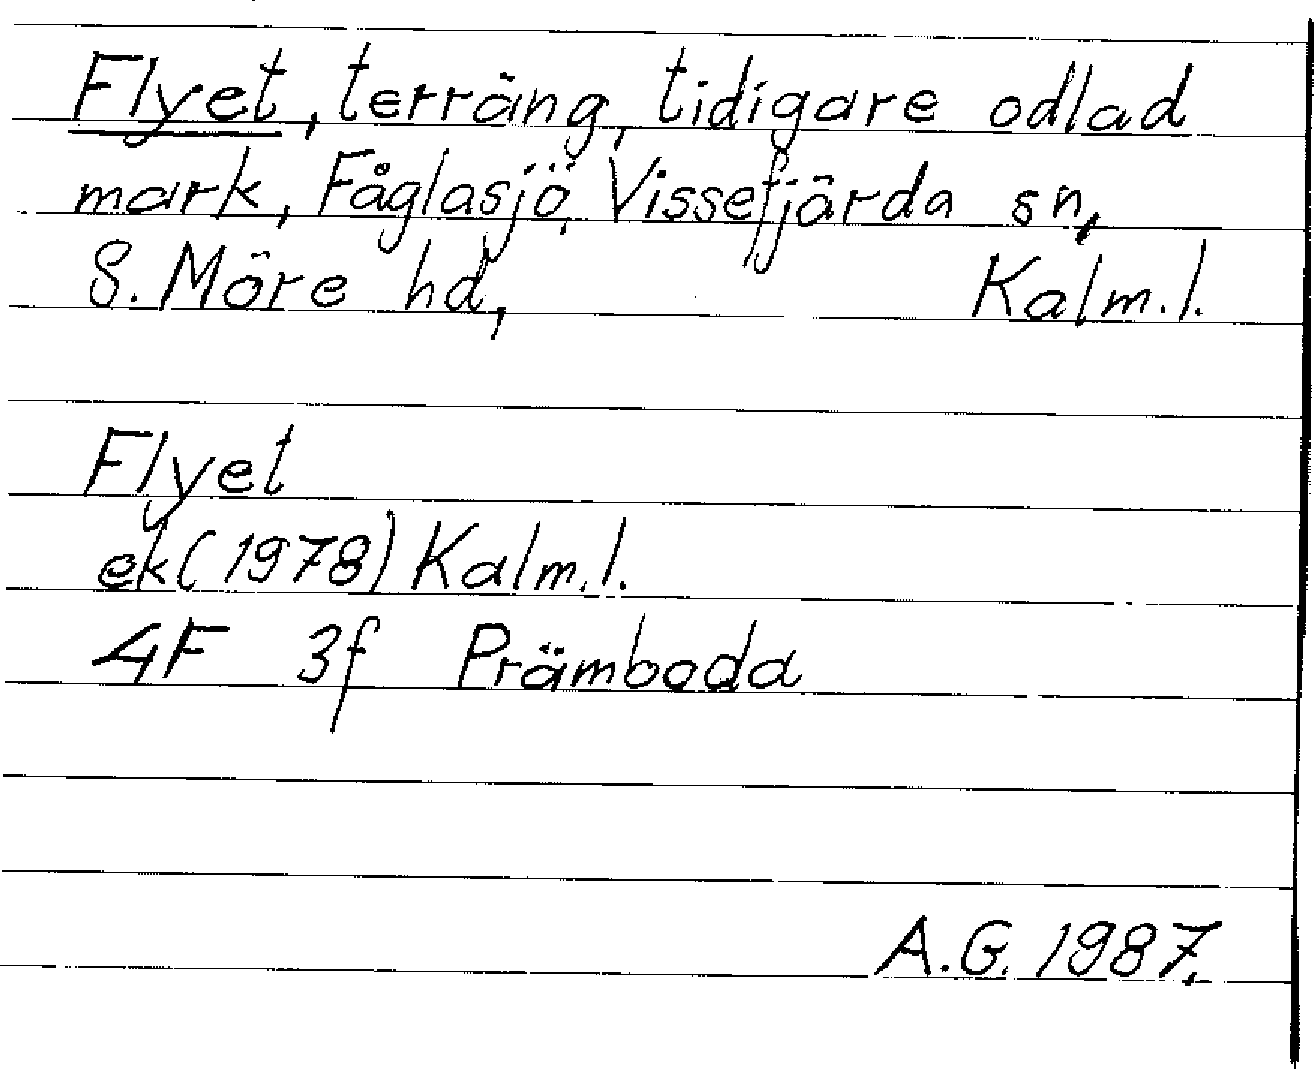 Flyet, terräng, tidigare odlad
mark, Fåglasjö, Vissefjärda sn,
S. Möre hd, Kalm.l.
Flyet
ek(1978) Kalm.l.
4F 3f Prämboda
A.G. 1987.